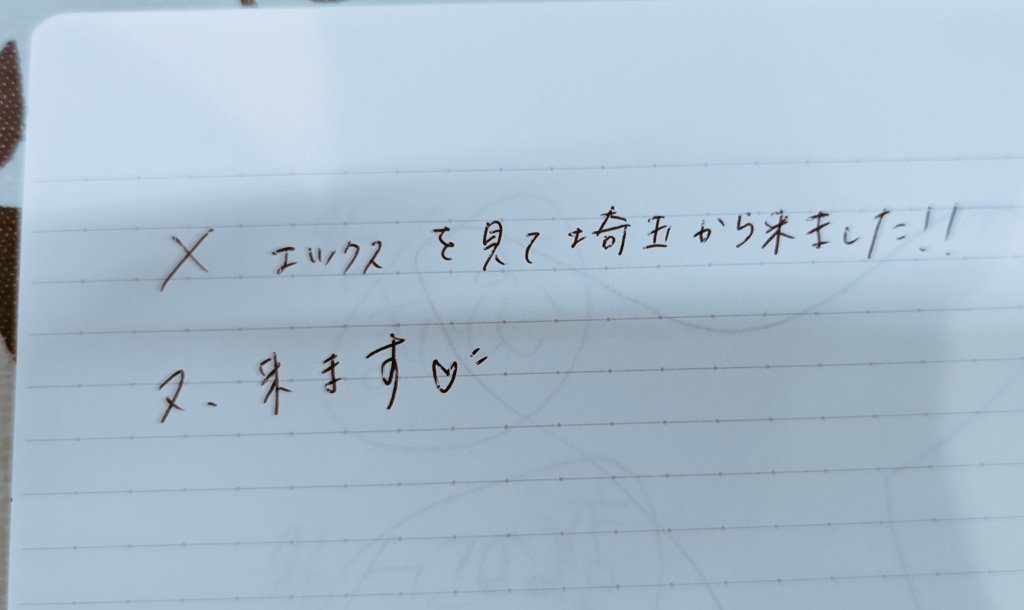 X エックスを見て埼玉から来ました!!
又、来ます♡